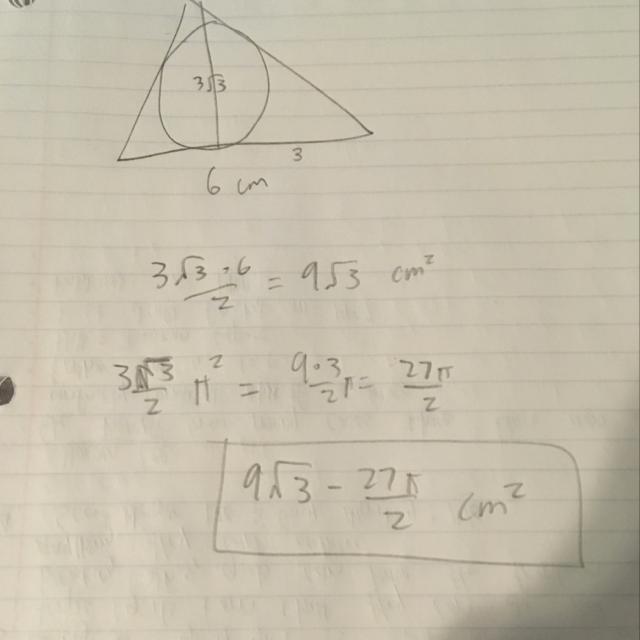 3√3
3
6 cm
3√3 · 6 / 2 = 9√3 cm²
3√3 / 2 π² = 9·3 / 2 π = 27π / 2
9√3 − 27π / 2 cm²